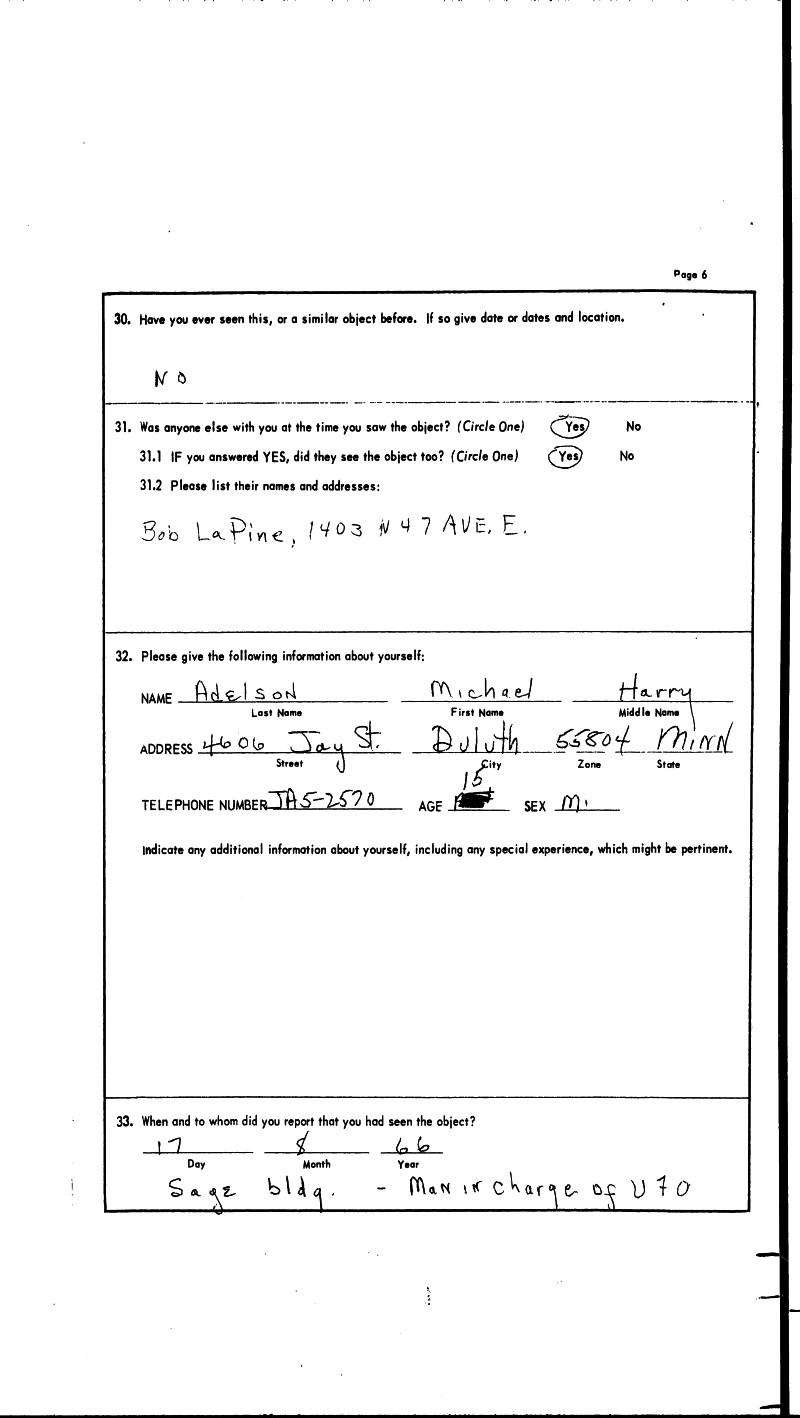 Page 6
30. Have you ever seen this, or a similar object before. If so give date or dates and location.
NO
31. Was anyone else with you at the time you saw the object? (Circle One) Yes No
31.1 IF you answered YES, did they see the object too? (Circle One) Yes No
31.2 Please list their names and addresses:
Bob LaPine, 1403 N 47 AVE. E.
32. Please give the following information about yourself:
NAME Adelson Michael Harry
Last Name First Name Middle Name
ADDRESS 4606 Jay St. Duluth 55804 MINN
Street City Zone State
15
TELEPHONE NUMBER JA5-2570 AGE SEX M.
Indicate any additional information about yourself, including any special experience, which might be pertinent.
33. When and to whom did you report that you had seen the object?
17 8 66
Day Month Year
Sage bldg. - Man in charge of UFO